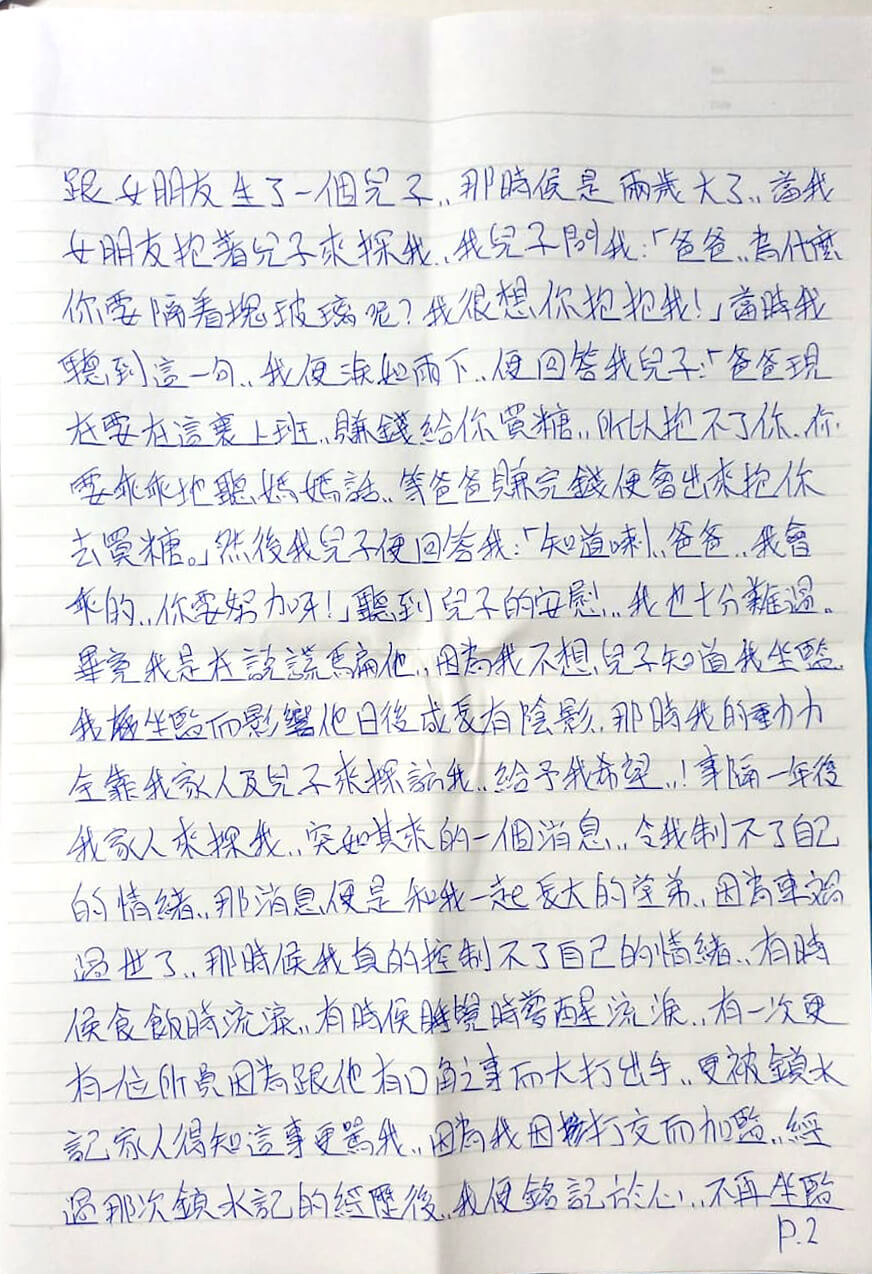 跟女朋友生了一個兒子,,那時候是兩歲大了,,當我
女朋友抱著兒子來探我,,我兒子問我:「爸爸,,為什麼
你要隔着塊玻璃呢?我很想你抱抱我!」當時我
聽到這一句,,我便淚如雨下,,便回答我兒子:「爸爸現
在要在這裏上班,,賺錢給你買糖,,所以抱不了你,你
要乖乖地聽媽媽話,,等爸爸賺完錢便會出來抱你
去買糖。」然後我兒子便回答我:「知道喇,,爸爸,,我會
乖的,,你要努力呀!」聽到兒子的安慰,,我也十分難過。
畢竟我是在說謊騙他,,因為我不想兒子知道我坐監,
我坐監而影響他日後成長有陰影,那時我的動力
全靠我家人及兒子來探訪我,,給予我希望,,!事隔一年後
我家人來探我,,突如其來的一個消息,,令我制不了自己
的情緒,,那消息便是和我一起長大的堂弟,,因為車禍
過世了,,那時候我真的控制不了自己的情緒,,有時
候食飯時流淚,,有時候睡覺時驚醒流淚,,有一次更
有一位所員因為跟他有口角之事而大打出手,,更被鎖水
記家人得知這事更罵我,,因為我因打交而加監,,經
過那次鎖水記的經歷後,,我便銘記於心,,不再坐監
P.2